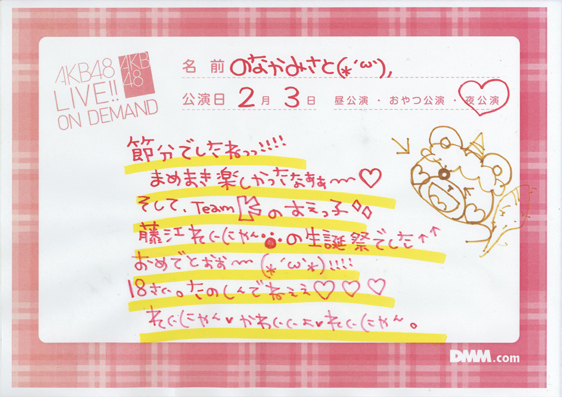 AKB48
LIVE!!
ON DEMAND
AKB
48
名前 のなかみさと(*´ω`),
公演日 2月 3日 昼公演・おやつ公演・夜公演
節分でしたねっっ!!!!
まめまき楽しかったなぁぁ〜〜♡
そして、Team Kのすえっ子◇◇
藤江れいにゃんの生誕祭でした↑↑
おめでとぉぉ〜〜(*´ω`*)!!!!
18さい。たのしんでねぇぇ♡♡♡
れいにゃん♥かわいいよ♥れいにゃん。
DMM.com